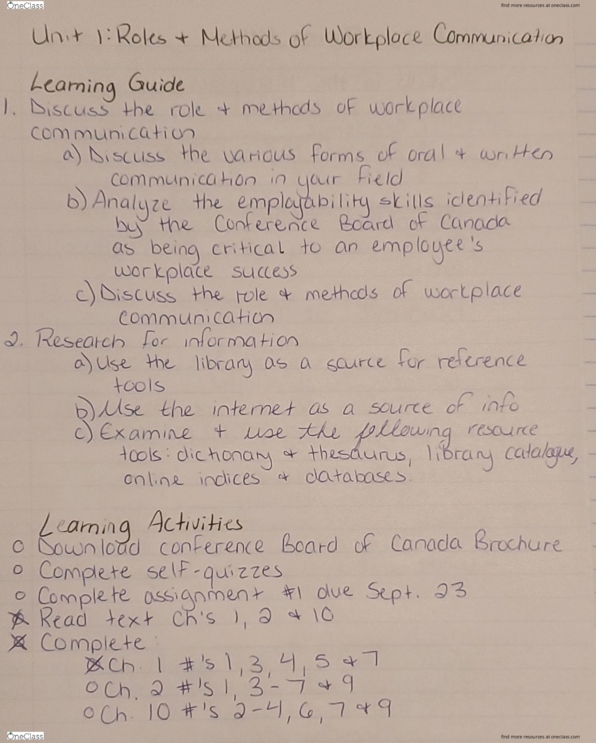 OneClass
find more resources at oneclass.com
Unit 1: Roles + Methods of Workplace Communication
Learning Guide
1. Discuss the role + methods of workplace
communication
a) Discuss the various forms of oral + written
communication in your field
b) Analyze the employability skills identified
by the Conference Board of Canada
as being critical to an employee's
workplace success
c) Discuss the role + methods of workplace
communication
2. Research for information
a) Use the library as a source for reference
tools
b) Use the internet as a source of info
c) Examine + use the following resource
tools: dictionary + thesaurus, library catalogue,
online indices + databases.
Learning Activities
o Download conference Board of Canada Brochure
o Complete self-quizzes
o Complete assignment #1 due Sept. 23
Read text ch's 1, 2 + 10
Complete:
Ch. 1 #'s 1, 3, 4, 5 + 7
o Ch. 2 #'s 1, 3-7 + 9
o Ch. 10 #'s 2-4, 6, 7 + 9
OneClass
find more resources at oneclass.com